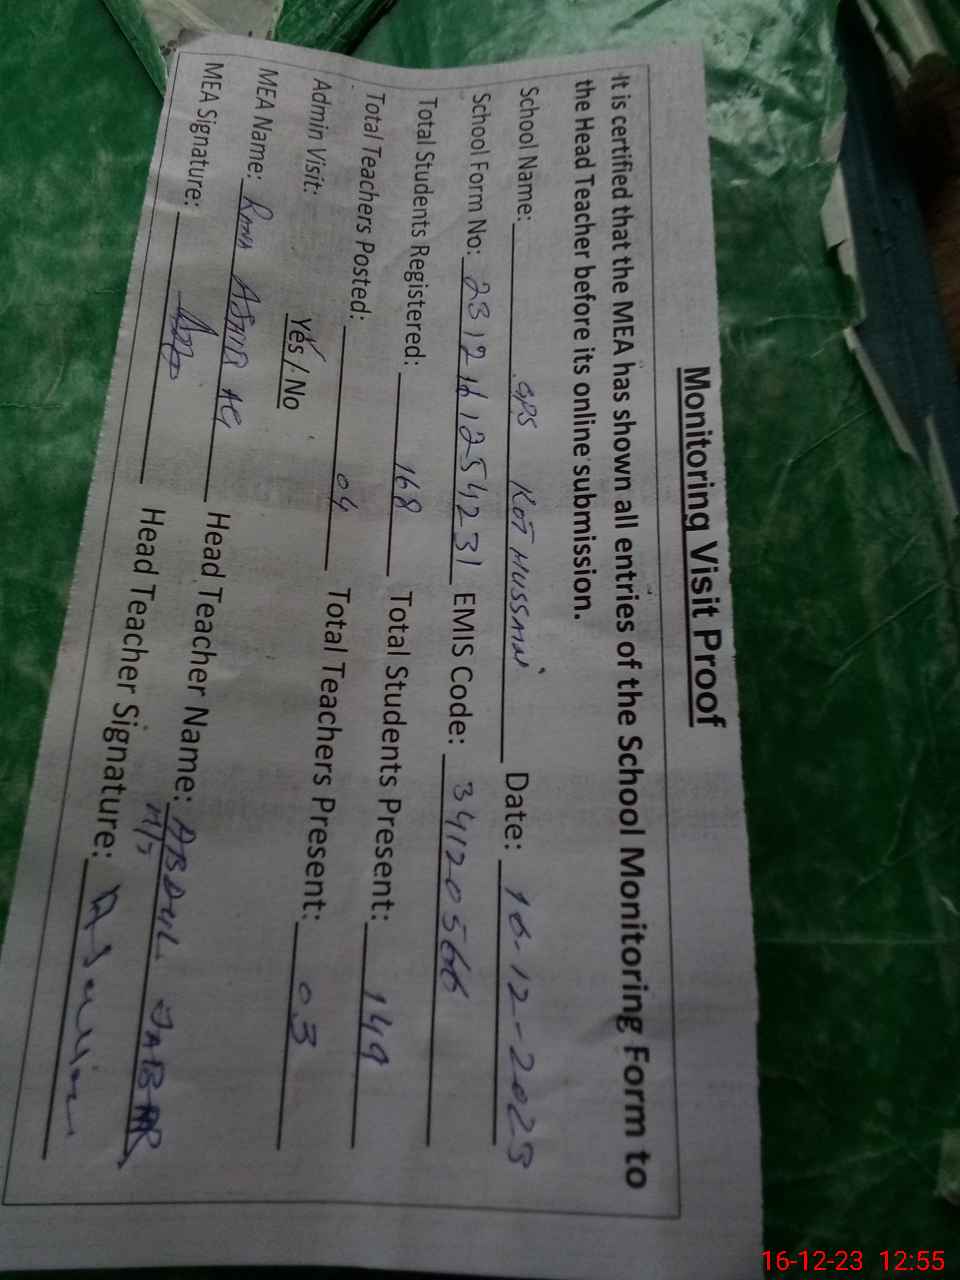 Monitoring Visit Proof
It is certified that the MEA has shown all entries of the School Monitoring Form to
the Head Teacher before its online submission.
School Name: GPS KOT HUSSAIN Date: 16-12-2023
School Form No: EMIS Code: 34120566
Total Students Registered: 168 Total Students Present: 149
Total Teachers Posted: 04 Total Teachers Present: 03
Admin Visit: Yes / No
MEA Name: Head Teacher Name: ABDUL JABBAR
MEA Signature: Head Teacher Signature:
16-12-23 12:55